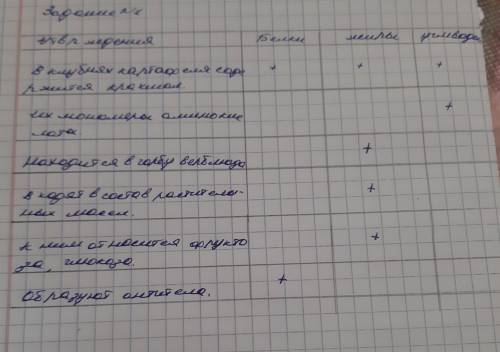 Задание №1
утверждения Белки жиры углеводы
в клубнях картофеля соде + + +
ржится крахмал.
их мономеры аминокис +
лота
Находится в горбу верблюда +
входят в состав раститель- +
ных масел.
к ним относится фрукто +
за, глюкоза.
Образуют антитела. +